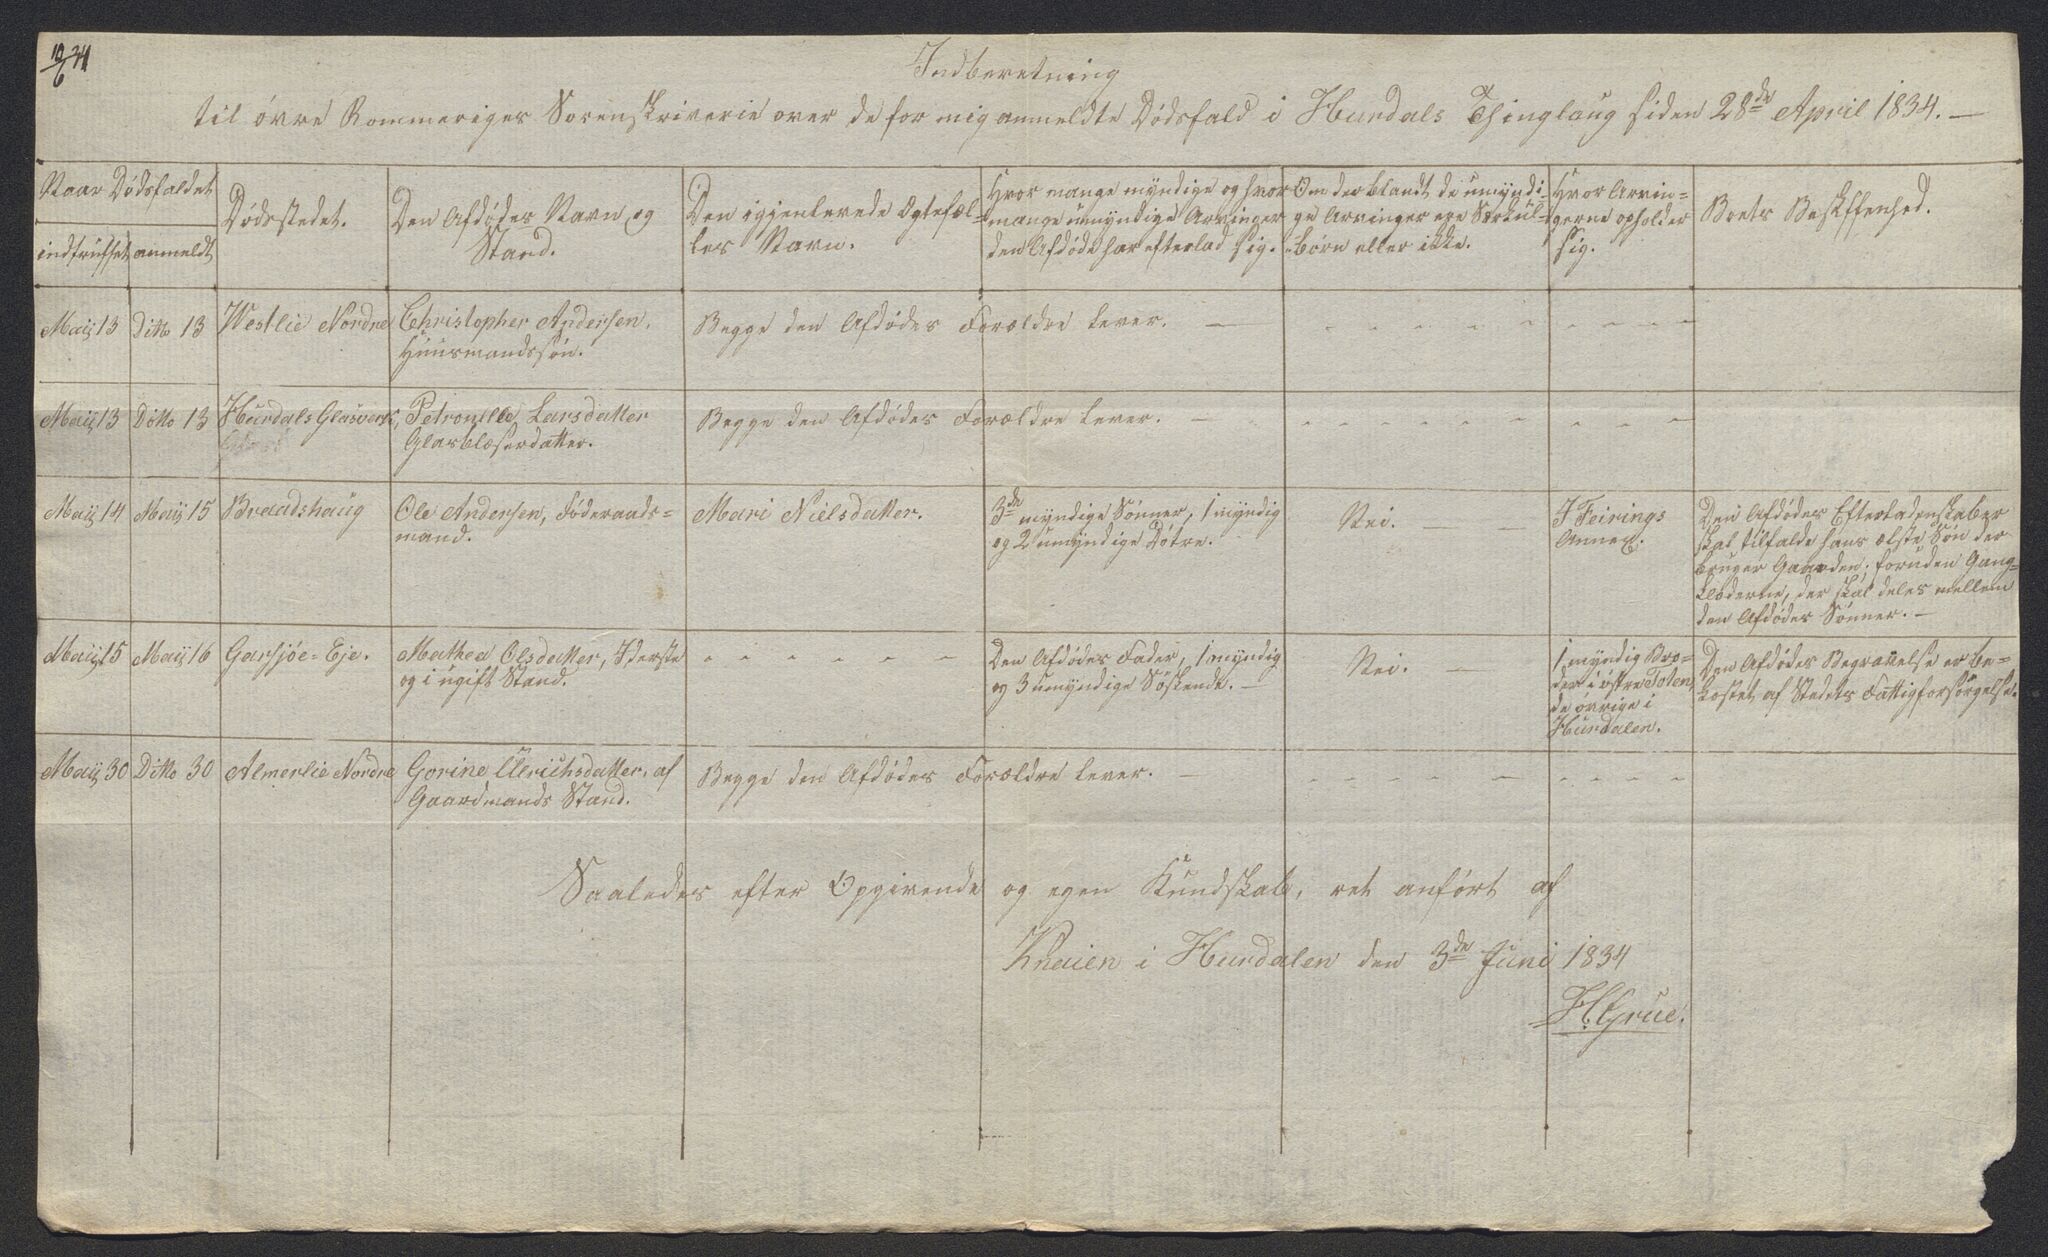 10/6 34
Indberetning
til øvre Rommeriges Sorenskriverie over de for mig anmeldte Dødsfald i Hurdals Thinglaug siden 28de April 1834. —
Naar Dødsfaldet
indtruffet
anmeldt
Dødsstedet.
Den Afdødes Navn og
Stand.
Den igjenlevede Ægtefæl-
les Navn.
Hvor mange myndige og hvor
mange umyndige Arvinger
den Afdøde har efterlad sig.
Om der blandt de umyndi-
ge Arvinger ere Særkul-
børn eller ikke.
Hvor Arvin-
gerne opholder
sig.
Boets Beskffenhed.
Maij 13
Ditto 13
Westlie Nordre
Christopher Andersen,
Huusmandssøn.
Begge den Afdødes Forældre lever. —
Maij 13
Ditto 13
Hurdals Glasværk,
Petronelle Larsdatter
Glasblæserdatter.
Begge den Afdødes Forældre lever. —
Maij 14
Maij 15
Braadshaug
Ole Andersen, Føderaads-
mand.
Mari Nielsdatter.
3de myndige Sønner, 1 myndig
og 2 umyndige Døtre.
Nei. — —
I Feirings
Annex.
Den Afdødes Efterladenskaber
skal tilfalde hans ælste Søn der
bruger Gaarden; foruden Gang-
klæderne, der skal deles mellem
den Afdødes Sønner. —
Maij 15
Maij 16
Garsjøe-Eje.
Mathea Olsdatter, Iderste
og i ugift Stand.
Den Afdødes Fader, 1 myndig
og 3 umyndige Søskende. —
Nei. —
1 myndig Bro-
der i østre Toten,
de øvrige i
Hurdalen.
Den Afdødes Begravelse er be-
kostet af Stedets Fattigforsørgelse.
Maij 30
Ditto 30
Almerlie Nordre
Gorine Ulrichsdatter, af
Gaardmands Stand.
Begge den Afdødes Forældre lever. —
Saaledes efter Opgivende og egen Kundskab, ret anført af
Knaien i Hurdalen den 3de Juni 1834
H. Grue.